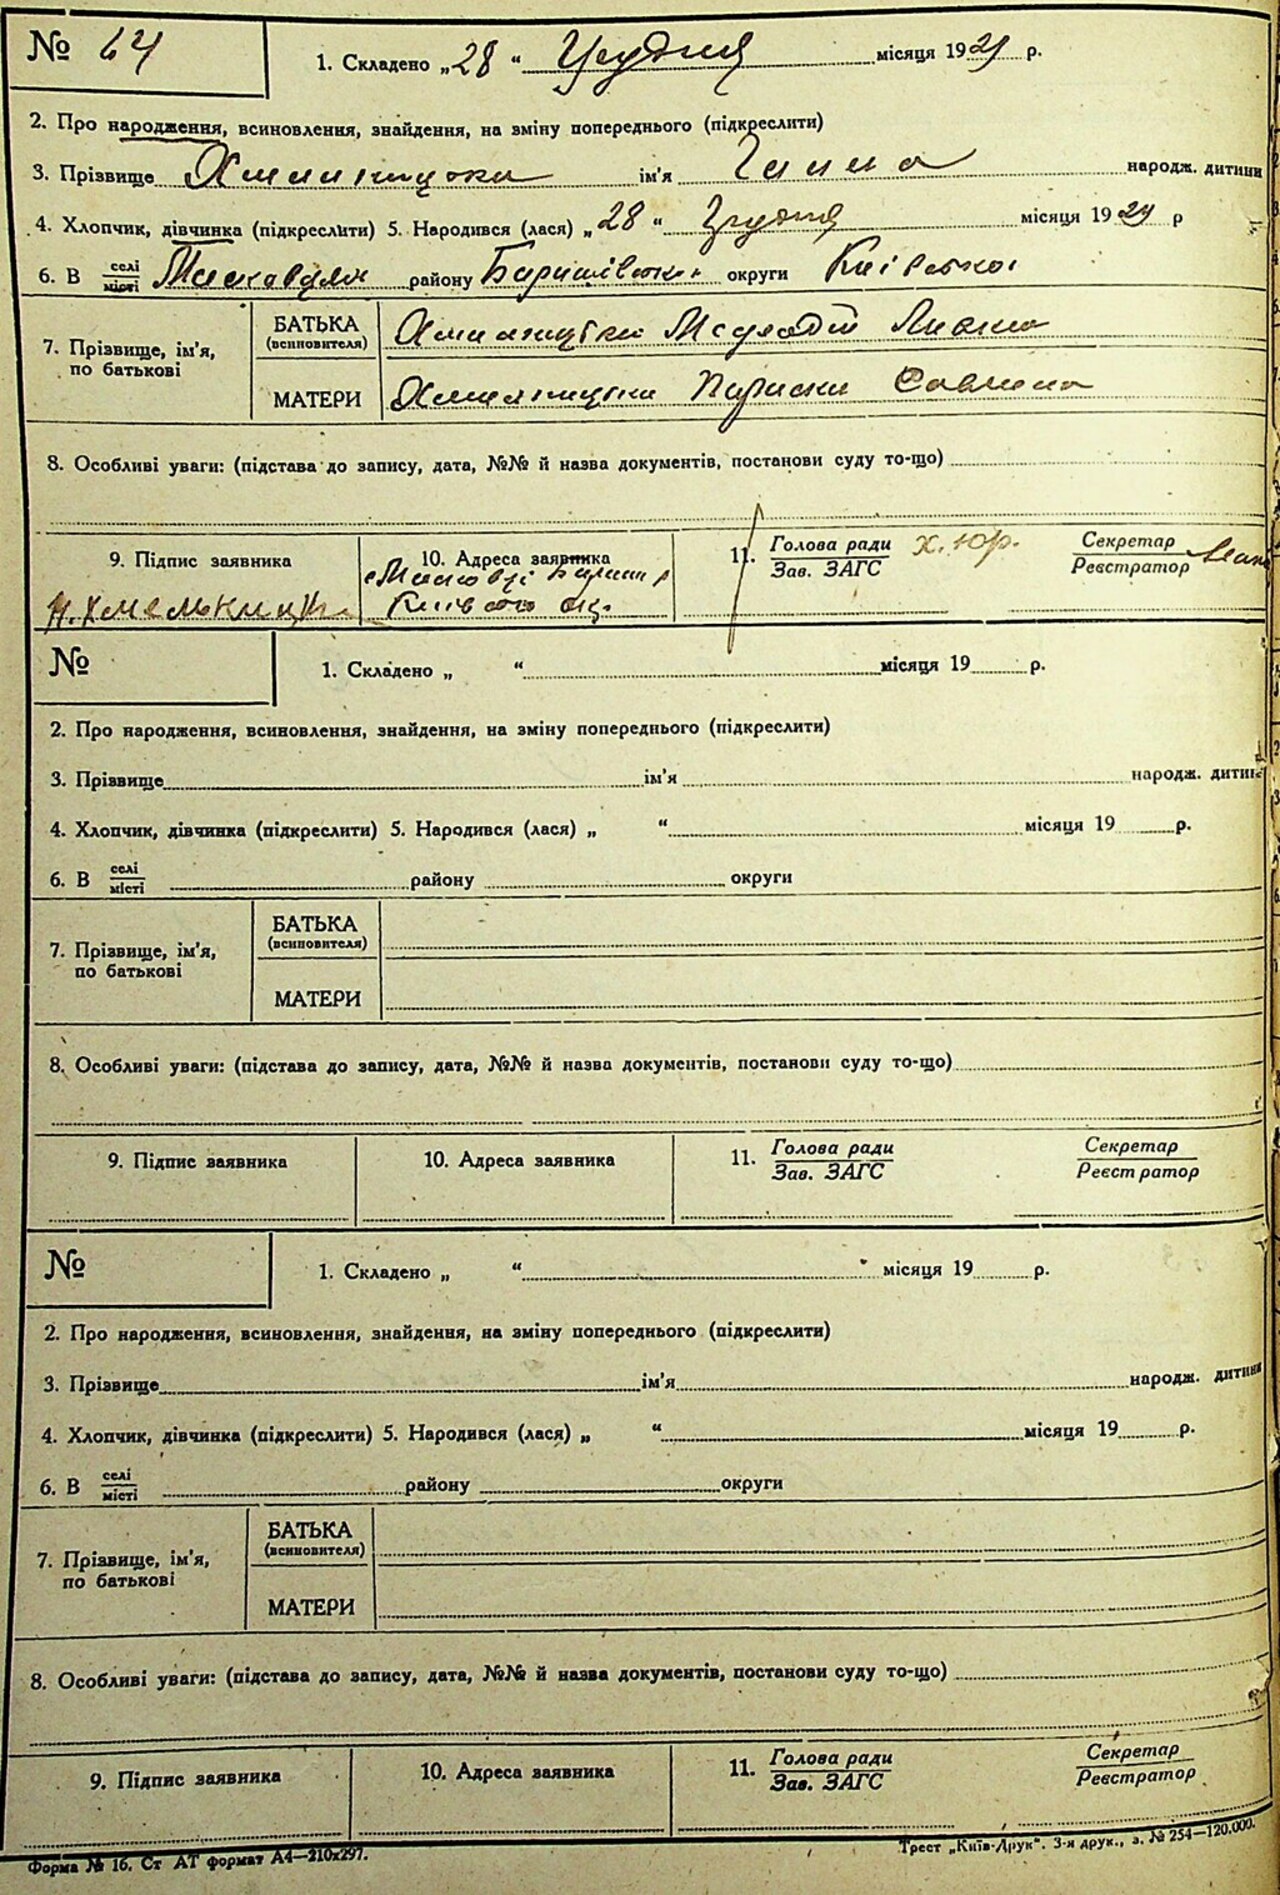 № 64
1. Складено „28“ Грудня місяця 1929 р.
2. Про народження, всиновлення, знайдення, на зміну попереднього (підкреслити)
3. Прізвище ім'я народж. дитини
4. Хлопчик, дівчинка (підкреслити) 5. Народився (лася) „28“ Грудня місяця 1929 р
6. В селі/місті району Баришівськ. округи Київської
7. Прізвище, ім'я, по батькові
БАТЬКА (всиновителя)
МАТЕРИ Хмельницька Параска
8. Особливі уваги: (підстава до запису, дата, №№ й назва документів, постанови суду то-що)
9. Підпис заявника
10. Адреса заявника
11. Голова ради/Зав. ЗАГС
Секретар/Реєстратор
№
1. Складено „ “ місяця 19 р.
2. Про народження, всиновлення, знайдення, на зміну попереднього (підкреслити)
3. Прізвище ім'я народж. дитини
4. Хлопчик, дівчинка (підкреслити) 5. Народився (лася) „ “ місяця 19 р.
6. В селі/місті району округи
7. Прізвище, ім'я, по батькові
БАТЬКА (всиновителя)
МАТЕРИ
8. Особливі уваги: (підстава до запису, дата, №№ й назва документів, постанови суду то-що)
9. Підпис заявника
10. Адреса заявника
11. Голова ради/Зав. ЗАГС
Секретар/Реєстратор
№
1. Складено „ “ місяця 19 р.
2. Про народження, всиновлення, знайдення, на зміну попереднього (підкреслити)
3. Прізвище ім'я народж. дитини
4. Хлопчик, дівчинка (підкреслити) 5. Народився (лася) „ “ місяця 19 р.
6. В селі/місті району округи
7. Прізвище, ім'я, по батькові
БАТЬКА (всиновителя)
МАТЕРИ
8. Особливі уваги: (підстава до запису, дата, №№ й назва документів, постанови суду то-що)
9. Підпис заявника
10. Адреса заявника
11. Голова ради/Зав. ЗАГС
Секретар/Реєстратор
Форма № 16. Ст АТ формат А4—210х297.
Трест „Київ-Друк“. 3-я друк., з. № 254—120.000.